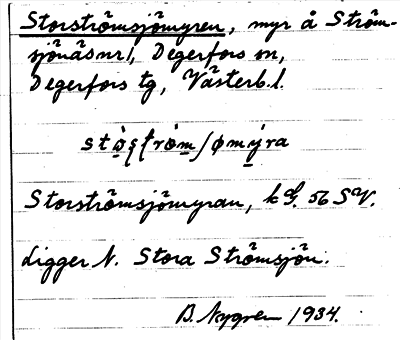 Storströmsjömyren, myr å Ström-
sjönäsnr1, Degerfors sn,
Degerfors tg, Västerb.l.
Storströmsjömyran, k G. 56 SV.
Ligger N. Stora Strömsjön.
B. Nygren 1934.